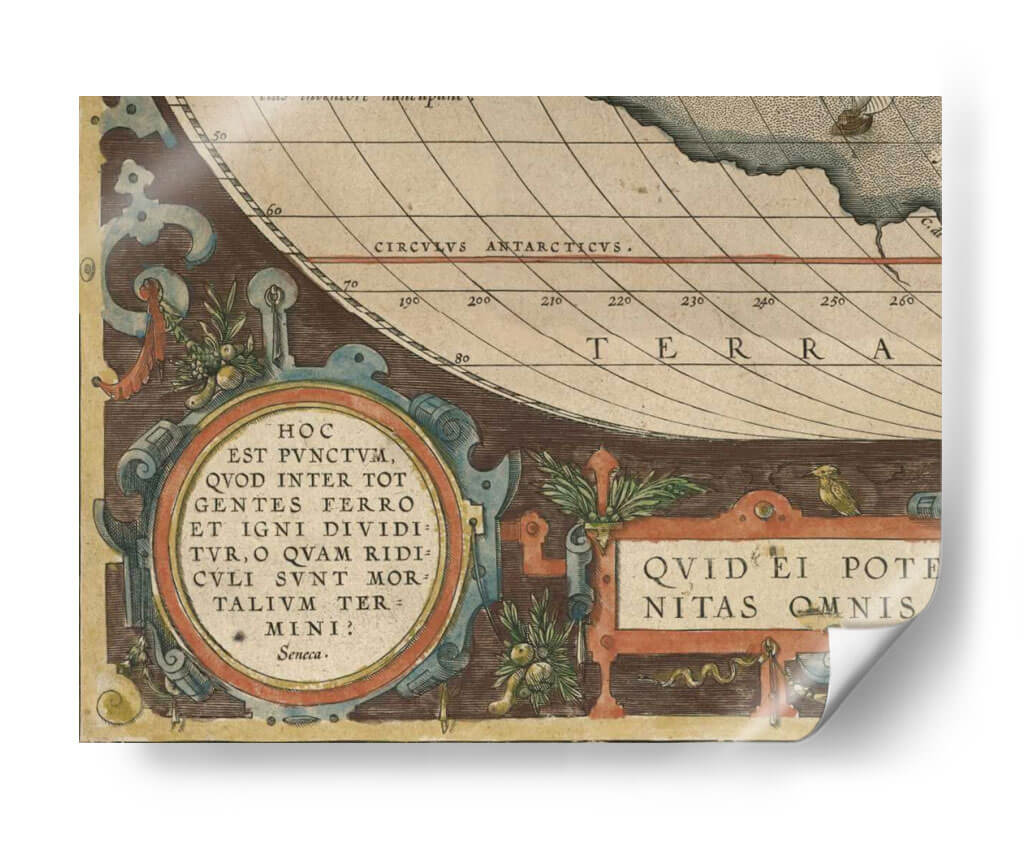 eius inventore nuncupant.
50
60
CIRCVLVS ANTARCTICVS.
70
190 200 210 220 230 240 250 260
C. de
TERRA
80
HOC
EST PVNCTVM,
QVOD INTER TOT
GENTES FERRO
ET IGNI DIVIDI=
TVR, O QVAM RIDI=
CVLI SVNT MOR=
TALIVM TER=
MINI?
Seneca.
QVID EI POTE
NITAS OMNIS